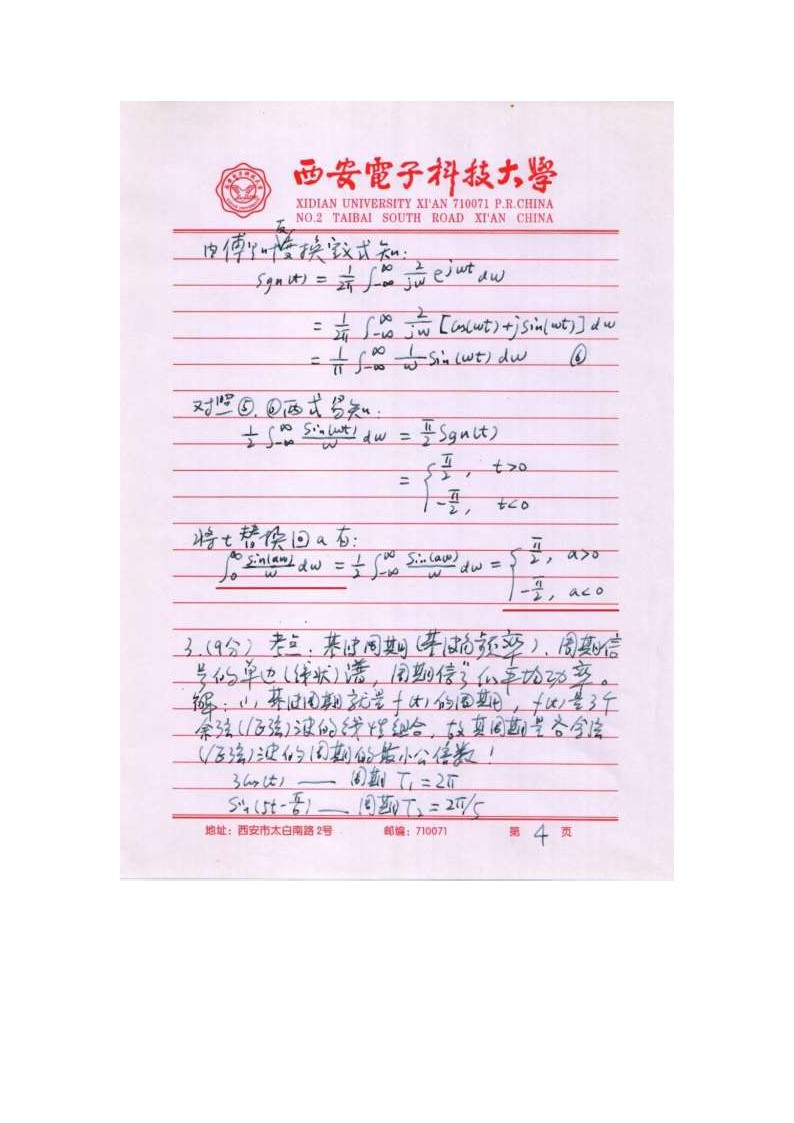 西安電子科技大學
XIDIAN UNIVERSITY XI'AN 710071 P.R.CHINA
NO.2 TAIBAI SOUTH ROAD XI'AN CHINA
由傅里叶反变换定义式知:
Sgn(t) = 1/2π ∫_{-∞}^{∞} 2/jw e^{jwt} dw
= 1/2π ∫_{-∞}^{∞} 2/jw [cos(wt)+jsin(wt)] dw
= 1/π ∫_{-∞}^{∞} 1/w sin(wt) dw ⑥
对照⑤、⑥两式易知:
1/2 ∫_{-∞}^{∞} sin(wt)/w dw = π/2 Sgn(t)
= { π/2, t>0
-π/2, t<0
将t替换回a有:
∫_0^∞ sin(aw)/w dw = 1/2 ∫_{-∞}^{∞} sin(aw)/w dw = { π/2, a>0
-π/2, a<0
3.(9分) 考点:基波周期(基波角频率)、周期信
号的单边(线状)谱,周期信号的平均功率。
解:(1) 基波周期就是f(t)的周期,f(t)是3个
余弦(正弦)波的线性组合,故其周期是各余弦
(正弦)波的周期的最小公倍数!
3cos(t) —— 周期 T₁=2π
Sin(5t-π/6) —— 周期 T₂=2π/5
地址:西安市太白南路2号 邮编:710071 第 4 页